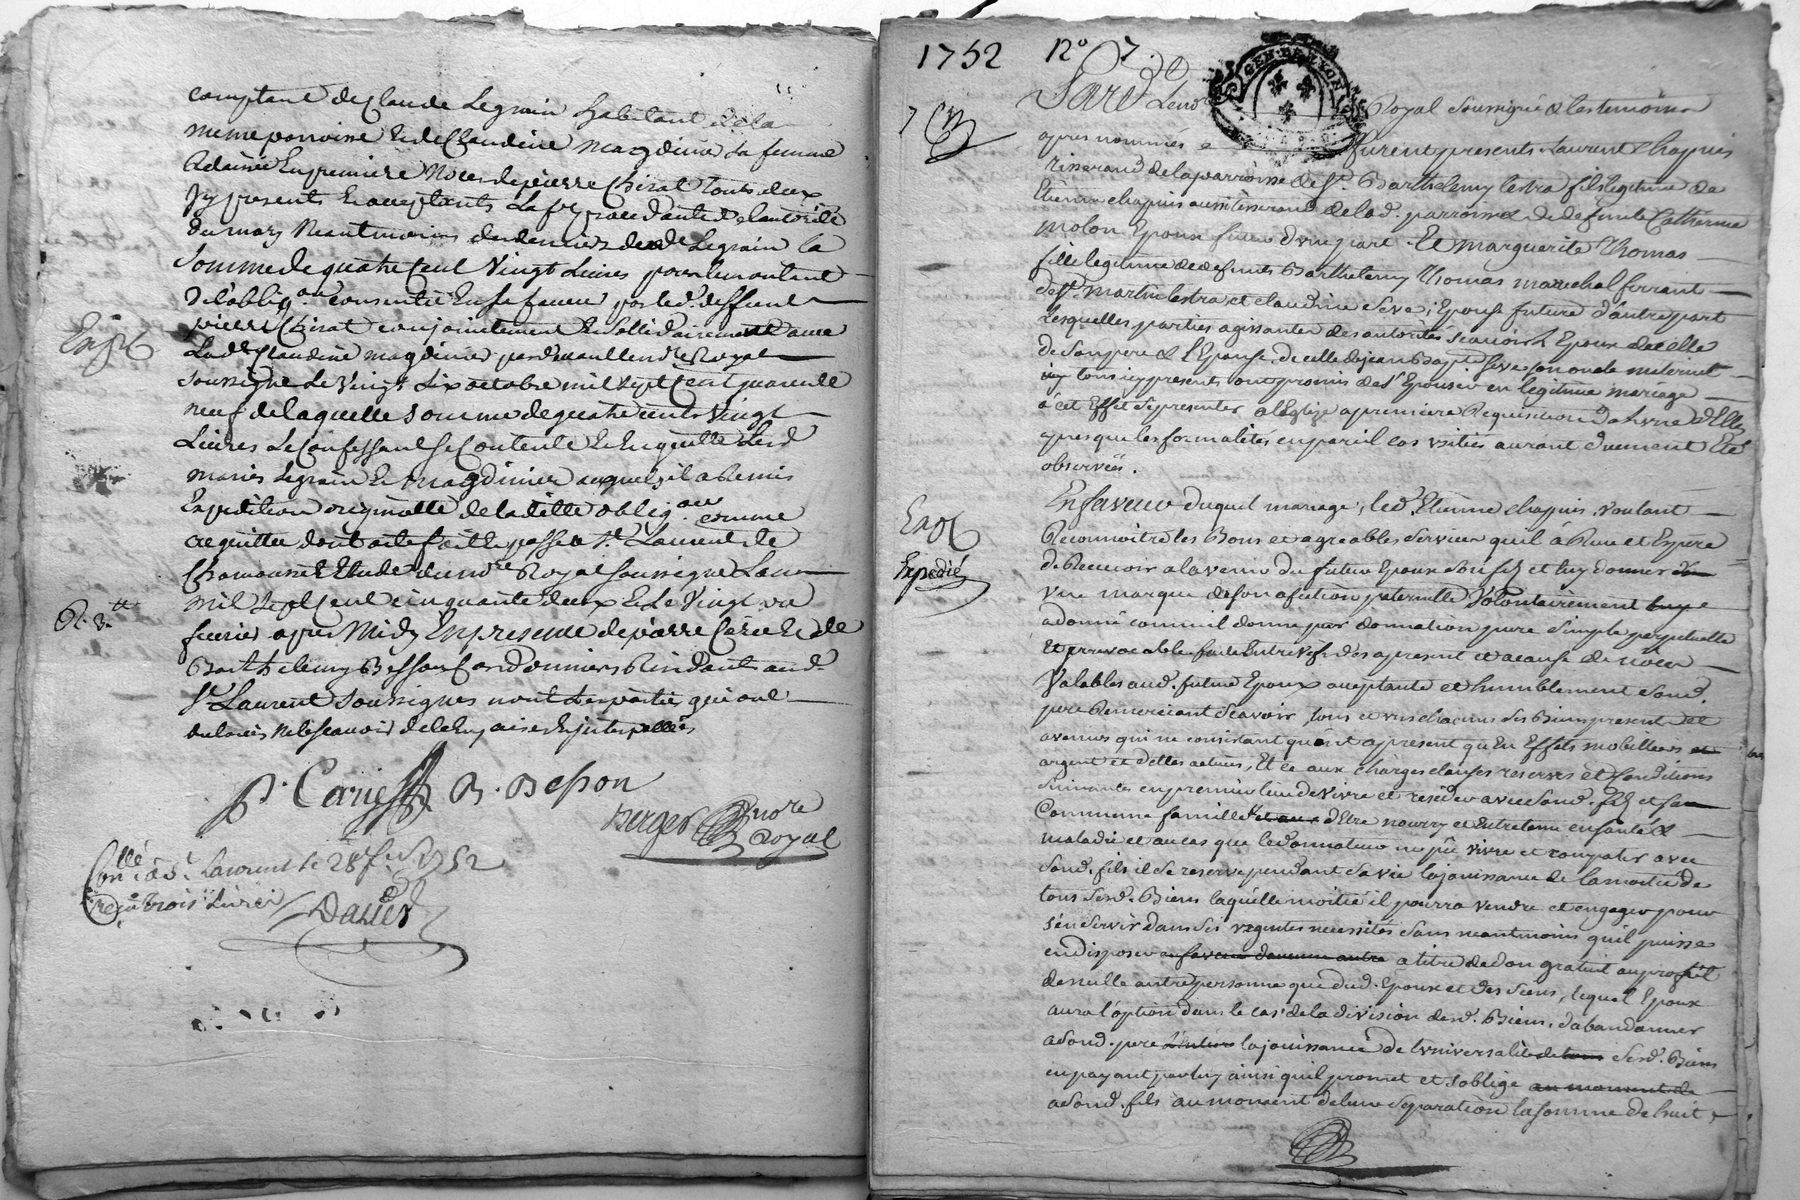 comptant de Claude Legrain habitant de la
meme parroisse et de Claudine magdinier sa femme
en premiere Noces de pierre Chirat tous deux
jcy presents et acceptants la fe procedante de l'autorité
du mary neantmoins des deniers dud. Legrain la
Somme de quatre Cent Vingt Livres pour le montant
de l'oblig.aon consentie en sa faveur par led. deffunt
pierre Chirat conjointement et solidairement avec
Lad. Claudine magdinier pardevant le no.re Royal
soussigné Le Vingt six octobre mil sept Cent quarente
neuf de laquelle somme de quatre cents vingt
Livres Le Confessant se Contente et en quitte Lesd.
mariés Legrain et magdinier auxquels il a Remis
Expedition originelle de lad. oblig.aon comme
acquittée dont acte fait et passé a St. Laurent de
Chamousset Etude du no.re Royal soussigné L'an
mil sept Cent cinquante deux et Le Vingt un
fevrier apres Midy En presence de pierre Cerie et de
Barthelemy Besson Cordonniers Residants aud.
St. Laurent soussignés non les parties qui ont
declarés ne le scavoir de ce Enquises et interpellées
Exp.
R. 3.tt
P. Cerie B. Besson
Berger no.re Royal
Con.llé à St. Laurent le 28 f. 1752
reçu trois Livres
Dasier
1752 N° 7
7
Pard. Le no.re Royal soussigné et les temoins
apres nommés furent presents Laurent Chapuis
tisserand de la parroisse de St. Barthelemy lestra fils legitime de
Etienne Chapuis aussi tisserand de lad. parroisse et de defunte Catherine
molon Epoux futur d'une part. Et marguerite Thomas
fille legitime de defunts Barthelemy Thomas marechal ferrant
de St. martin lestra et claudine Seve, Epouse future d'autre part
Lesquelles parties agissantes des autorités scavoir L'Epoux de celle
de son pere et l'Epouse de celle de jean Bapt. Seve son oncle maternel
tous icy presents ont promis de s'Epouser en legitime mariage
a cet Effet se presenter a l'Eglise a premiere Requisition de l'une d'Elles
apres que les formalités en pareil cas usitées auront duement Eté
observées.
En faveur duquel mariage, led. Etienne chapuis voulant
Reconnoitre les Bons et agreables Services qu'il a Reçu et Espere
de Recevoir a l'avenir du futur Epoux son fils et luy donner
une marque de son afection paternelle Volontairement
a donné comme il donne par donnation pure simple perpetuelle
et irrevocable faite Entre vifs des a present et a cause de nôces
Valables aud. futur Epoux acceptante et humblement sond.
pere Remerciant Scavoir, tous et uns chacuns ses Biens presents et
avenirs qui ne consistant quànt a present qu'en Effets mobiliers et
argent et dettes actives, Et ce aux charges clauses reserves et Conditions
Suivantes en premier lieu de vivre et resider avec sond. fils et sa
Commune famille d'Etre nourry et Entretenu en santé et
maladie et au cas que le donnateur ne put vivre et compatir avec
sond. fils il se reserve pendant sa vie la jouissance de la moitié de
tous sesd. Biens laquelle moitié il pourra vendre et engager pour
s'en servir dans ses urgentes necessités sans neantmoins qu'il puisse
en disposer en faveur d'aucun autre a titre de don gratuit au profit
de nulle autre personne que dud. Epoux et des siens, lequel Epoux
aura l'option dans le cas de la division desd. Biens, d'abandonner
a sond. pere la jouissance de l'universalité de tous sesd. Biens
en payant par luy ainsi qu'il promet et s'oblige au moment de
a sond. fils au moment de leur separation la somme de huit
Exp.
Expedié